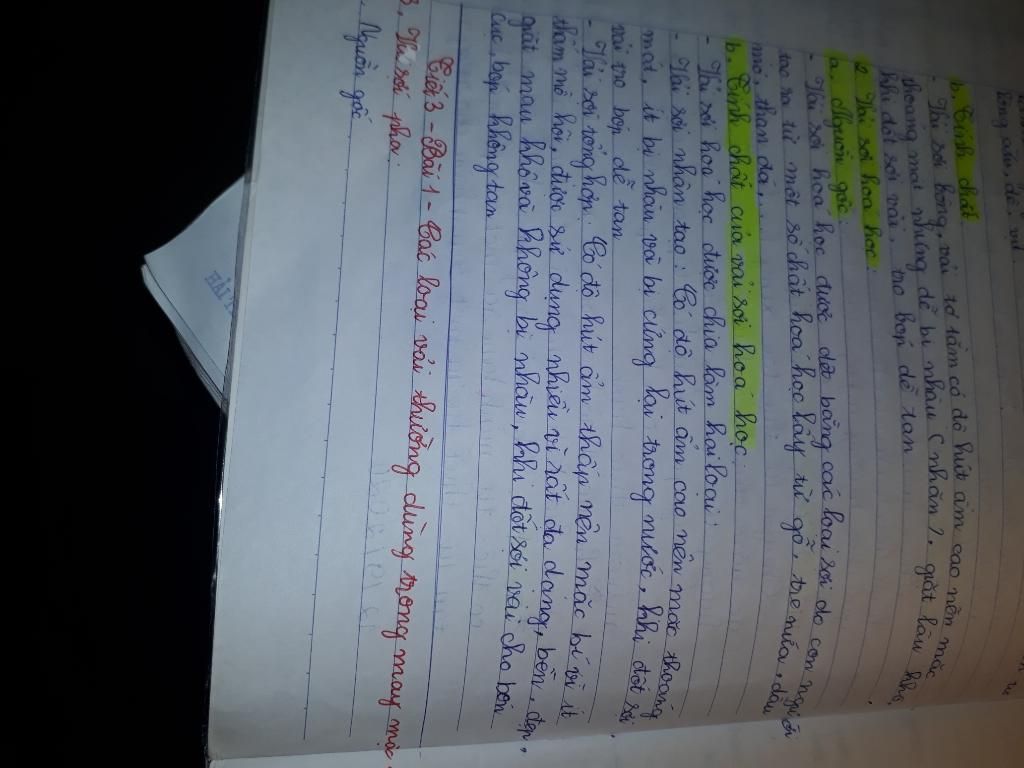 lông cừu, dê, vịt
b. Tính chất
- Vải sợi bông, vải tơ tằm có độ hút ẩm cao nên mặc
thoáng mát nhưng dễ bị nhàu (nhăn), giặt lâu khô
khi đốt sợi vải, tro bóp dễ tan
2. Vải sợi hoá học:
a. Nguồn gốc:
- Vải sợi hoá học được dệt bằng các loại sợi do con người
tạo ra từ một số chất hoá học lấy từ gỗ, tre nứa, dầu
mỏ, than đá,...
b. Tính chất của vải sợi hoá học:
- Vải sợi hoá học được chia làm hai loại:
- Vải sợi nhân tạo: Có độ hút ẩm cao nên mặc thoáng
mát, ít bị nhàu và bị cứng lại trong nước, khi đốt sợi
vải tro bóp dễ tan
- Vải sợi tổng hợp: Có độ hút ẩm thấp nên mặc bí vì ít
thấm mồ hôi, được sử dụng nhiều vì rất đa dạng, bền, đẹp,
giặt mau khô và không bị nhàu, khi đốt sợi vải cho bón
cục bóp không tan
Tiết 3 - Bài 1 - Các loại vải thường dùng trong may mặc
3. Vải sợi pha:
. Nguồn gốc